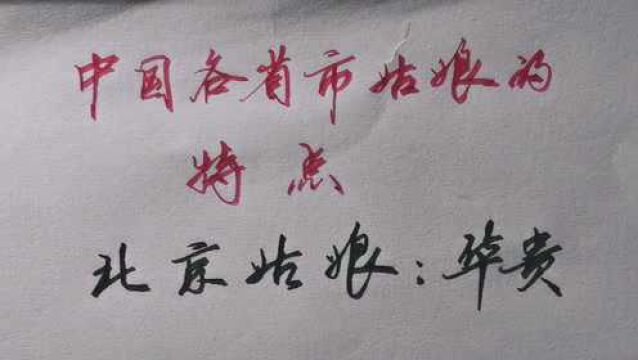 中国各省市姑娘的
特点
北京姑娘：华贵